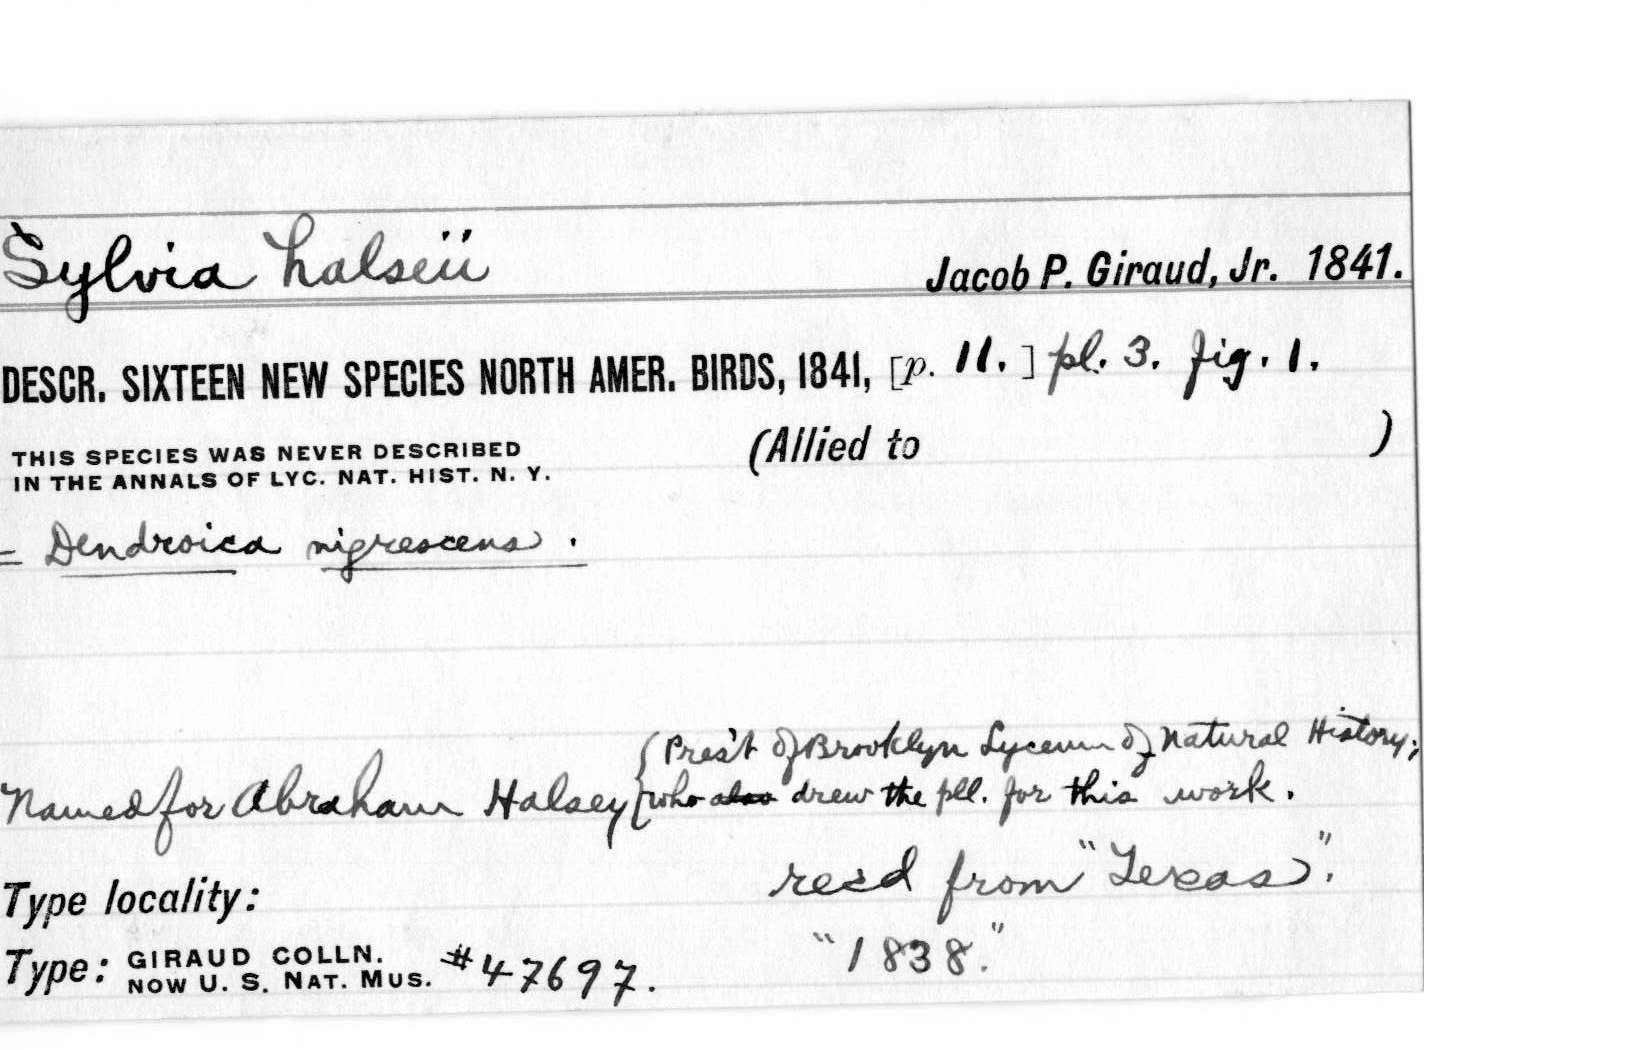 Sylvia halseii
Jacob P. Giraud, Jr. 1841.
DESCR. SIXTEEN NEW SPECIES NORTH AMER. BIRDS, 1841, [p. 11.] pl. 3. fig. 1.
THIS SPECIES WAS NEVER DESCRIBED
IN THE ANNALS OF LYC. NAT. HIST. N. Y.
(Allied to )
= Dendroica nigrescens.
Named for Abraham Halsey { Pres't of Brooklyn Lyceum of Natural History;
who also drew the pll. for this work.
recd from "Texas".
Type locality:
"1838."
Type: GIRAUD COLLN.
NOW U. S. NAT. MUS. #47697.